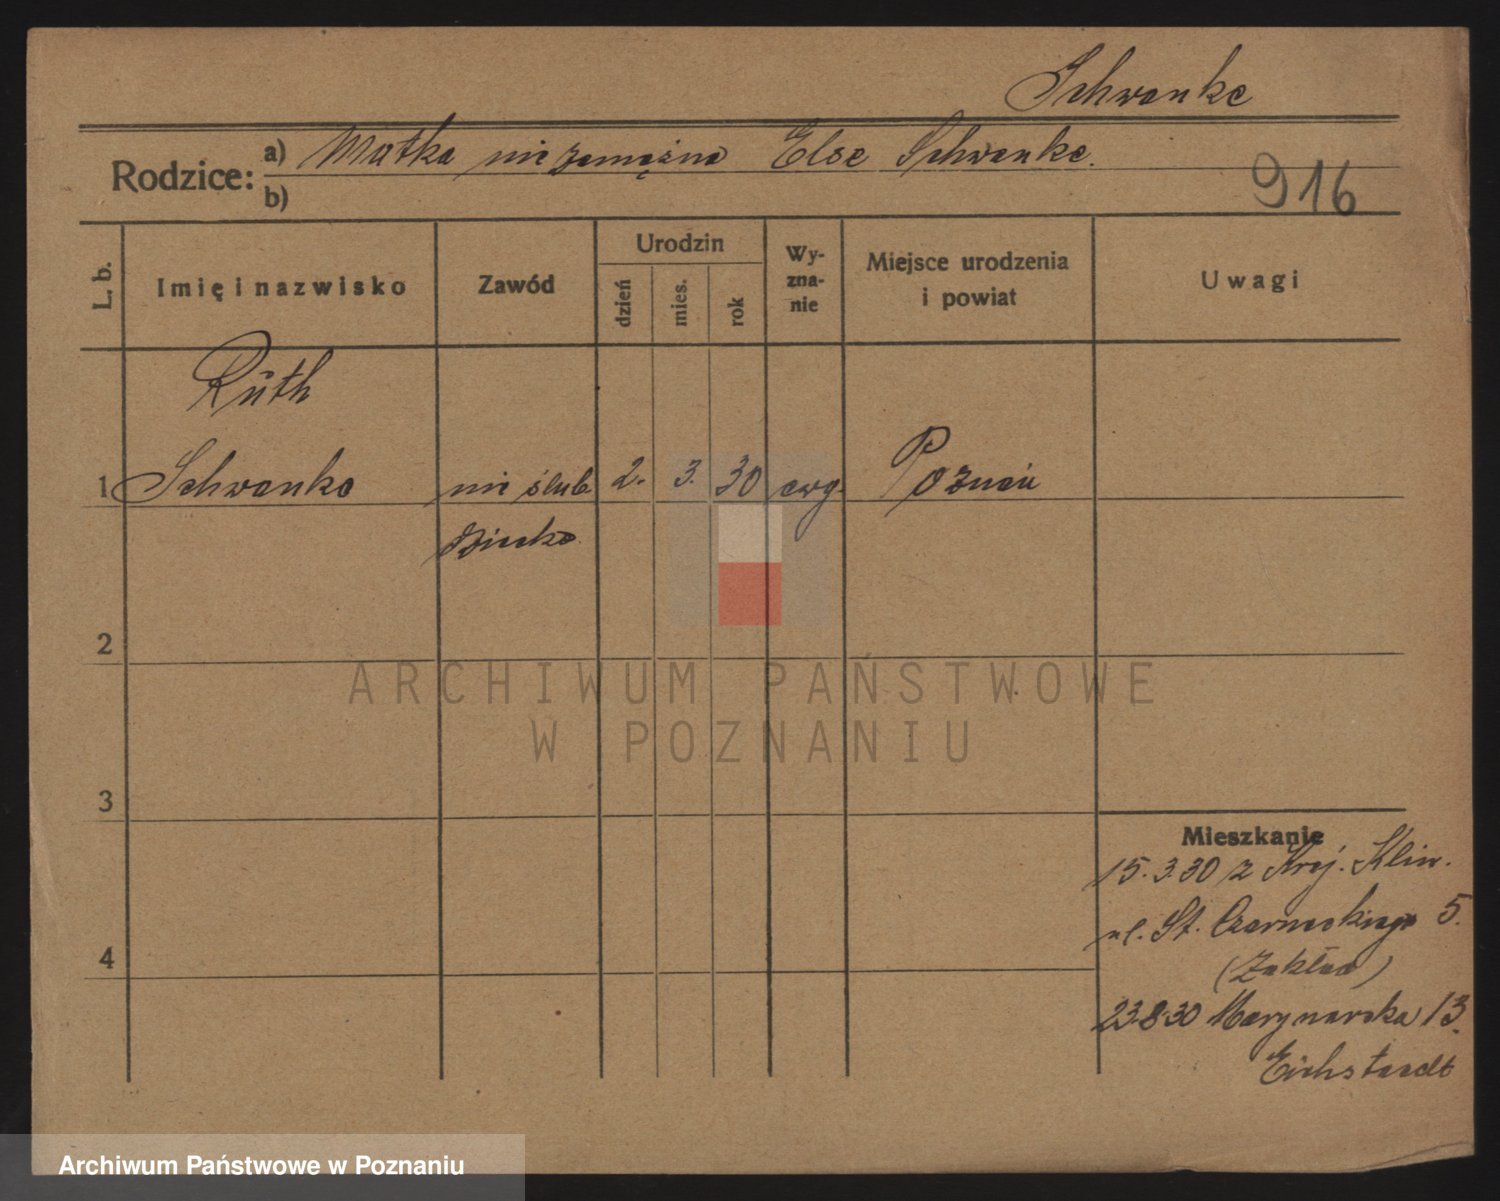 Schwanke
Rodzice: a) Matka niezamężna Else Schwanke.
b)
916
L. b.
Imię i nazwisko
Zawód
Urodzin
dzień
mies.
rok
Wy-
zna-
nie
Miejsce urodzenia
i powiat
Uwagi
Rŭth
1 Schwanke nie ślub. 2. 3. 30 ewg. Poznań
dziecko
2
ARCHIWUM PAŃSTWOWE
W POZNANIU
3
Mieszkanie
15.3.30 z Kraj. Klin.
ul. St. Czarneckiego 5.
(Zakład)
4
23.8.30 Marynarska 13.
Eichstaedt
Archiwum Państwowe w Poznaniu